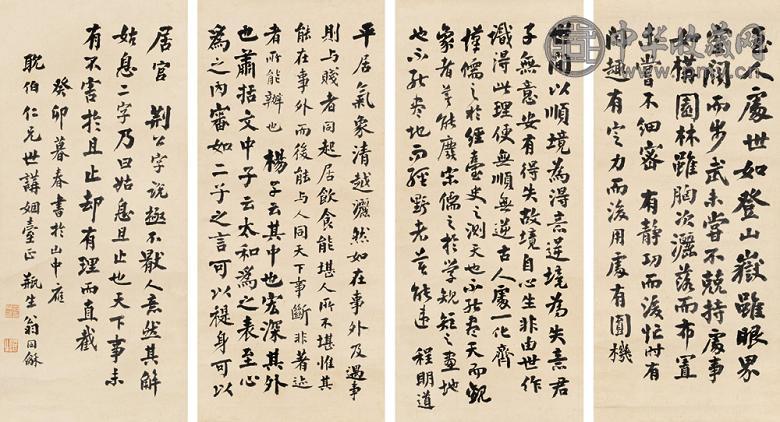 至人處世如登山嶽雖眼界
寬闊而步武未嘗不兢持處事
如構園林雖胸次灑落而布置
未嘗不細密 有靜功而後忙時有
閒趣有定力而後用處有圓機
世間以順境為得意逆境為失意君
子無意安有得失故境自心生非由世作
識得此理便無順無逆古人處一化齊
漢儒之於經臺史之測天也不能盡天而觀
象者莫能廢宋儒之於學規矩之畫地
也不能盡地而經野者莫能違 程明道
平居氣象清越灑然如在事外及遇事
則與賤者同起居飲食能堪人所不堪惟其
能在事外而後能與人同天下事斷非著迹
者所能辦也 楊子云其中也宏深其外
也肅括文中子云太和為之表至心
為之內審如二子之言可以褆身可以
居官 荊公字說極不厭人意然其解
姑息二字乃曰姑息且止也天下事未
有不害於且止却有理而直截
癸卯暮春書於山中應
耽伯仁兄世講姻臺正 瓶生翁同龢